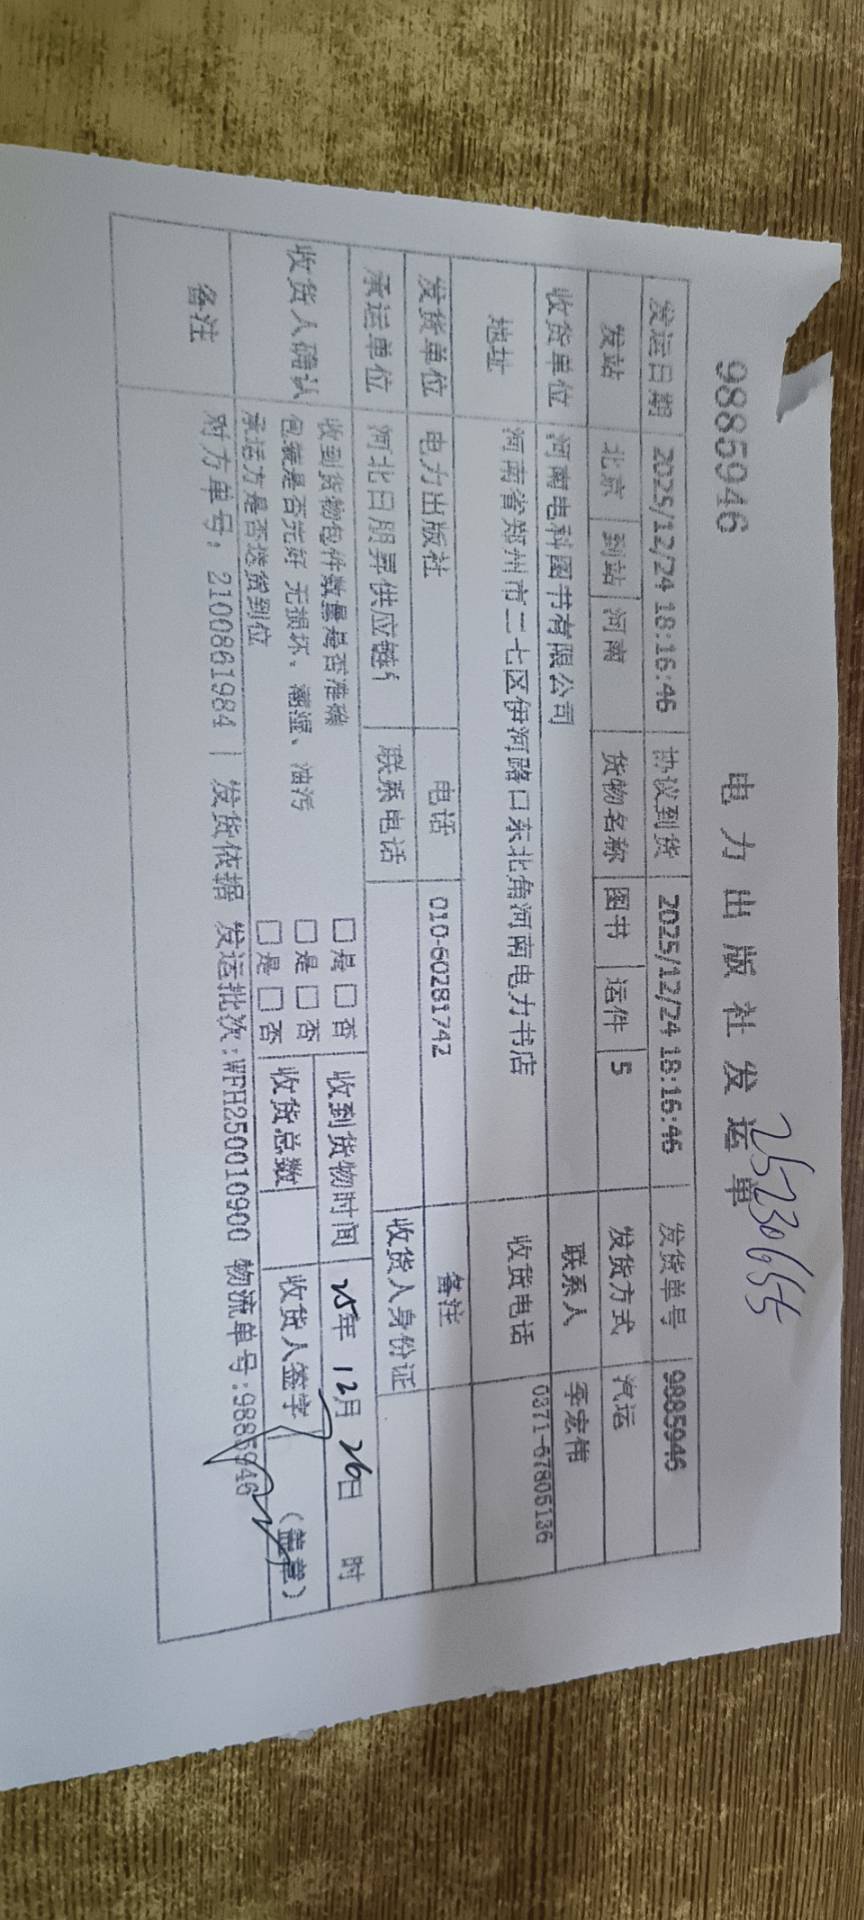 9885946
电力出版社发运单
25230655
发运日期 2025/12/24 18:16:46 协议到货 2025/12/24 18:16:46 发货单号 9885946
发站 北京 到站 河南 货物名称 图书 运件 5 发货方式 汽运
收货单位 河南电科图书有限公司 联系人 李宏伟
地址 河南省郑州市二七区伊河路口东北角河南电力书店 收货电话 0371-67805136
发货单位 电力出版社 电话 010-60281742 备注
承运单位 河北日朋昇供应链 联系电话 收货人身份证
收货人确认 收到货物包件数量是否准确 □是□否 收到货物时间 25年12月26日 时
包装是否完好 无损坏、潮湿、油污 □是□否
承运方是否送货到位 □是□否 收货总数 收货人签字 (盖章)
备注 对方单号：2100861984 | 发货依据 发运批次:WFH250010900 物流单号:9885946